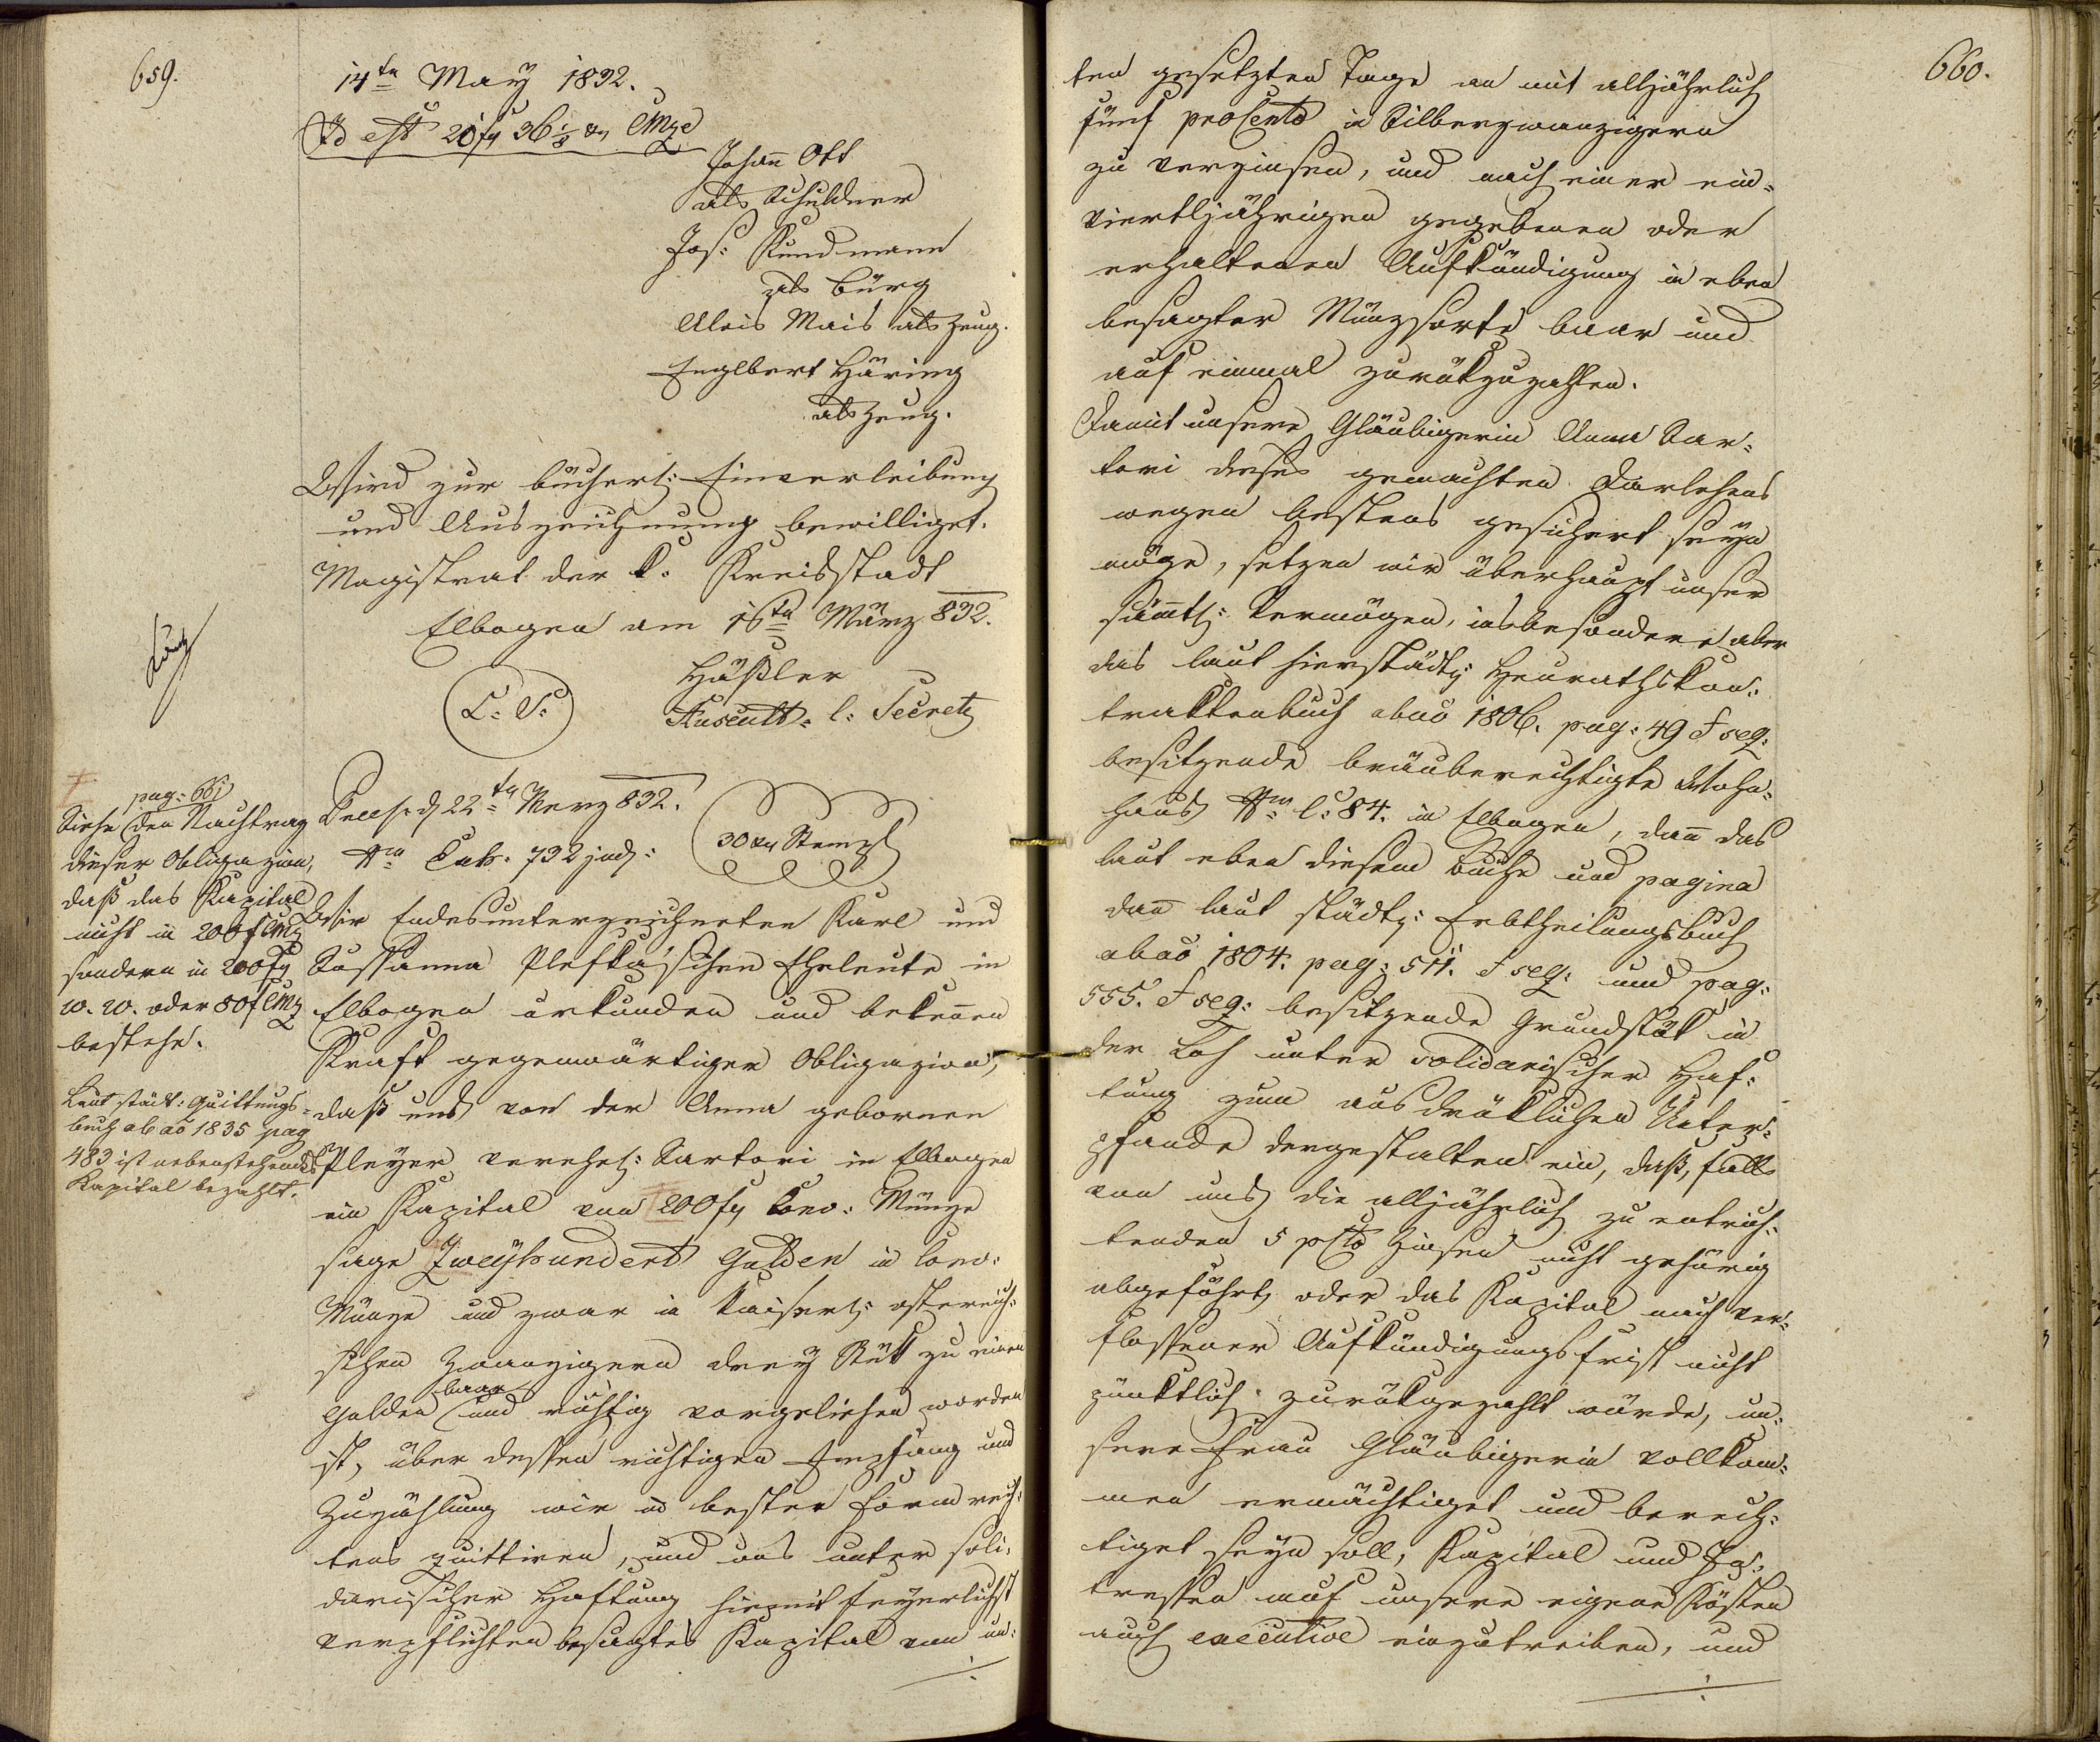 659.
14tn May 1832.
Id est 21 fr 36 1/8 xr CMze
Johañ Ott
als Schuldner
Jos: Kundmann
als Bürg
Alois Mais als Zeug.
Englbert Häring
als Zeug.
Wird zur bücherl: Einverleibung
und Auszeichnung bewilliget.
Magistrat der k. Kreisstadt
Elbogen am 16tn März 832.
L. S.
Häßler
Auscult. l. Secret
pag: 661
Siehe den Nachtrag
dieser Obligazion,
daß das Kapital
nicht in 200 f CMz
sondern in 200 fr
W. W. oder 80 f CMz
bestehe.
Laut städt: Quittungs-
buch ab aõ 1835 pag
483 ist nebenstehendes
Kapital bezahlt.
Praes. d 22tn Merz 832.
Nro Exh. 732 jud:
30 xr Stempl
Wir Endesunterzeichneten Karl und
Sussanna Pleska'schen Eheleute in
Elbogen urkunden und bekeñen
Kraft gegenwärtiger Obligazion,
daß uns von der Anna gebornen
Pleyer verehel: Sartori in Elbogen
ein Kapital von 200 fr Conv: Münze
sage Zweyhundert Gulden in Conv:
Münze und zwar in kaiserl: östereich:
schen Zwanzigern drey Stük zu einen
baar
Gulden und richtig vorgeliehen worden
ist, über dessen richtigen Empfang und
Zuzählung wir in bester Form rech:
tens quittiren, und uns unter soli:
darischer Haftung hiemit feyerlichst
verpflichten besagtes Kapital von un:
660.
ten gesetzten Tage an mit alljährlich
fünf proCento in Silberzwanzigern
zu verzinsen, und nach einer ein:
viertljährigen gegebenen oder
erhaltenen Aufkündigung in eben
besagter Münzsorte baar und
auf einmal zurükzuzahlen.
Damit unsere Gläubigerin Anna Sar:
tori dieses gemachten Darlehens
wegen bestens gesichert seyn
möge, setzen wir überhaupt unser
sam̃tl: Vermögen, insbesondere aber
das laut hierstädt: Heurathskon:
traktenbuch ab aõ 1806. pag: 49 & seq:
besitzende bräuberechtigte Wohn:
haus Nro C. 84. in Elbogen, dañ das
laut eben diesem Buche und pagina
dañ laut städt: Erbtheilungsbuch
ab aõ 1804. pag: 511. & seq: und pag:
555. & seq: besitzende Grundstük in
der Loh unter solidarischer Haf:
tung zum ausdrüklichen Unter:
pfande dergestalten ein, daß, falls
von uns die alljährlich zu entrich:
tenden 5 pCto Zinsen nicht gehörig
abgeführt oder das Kapital nach ver:
flossener Aufkündigungsfrist nicht
pünktlich zurükgezahlt würde, un:
sere Frau Gläubigerin vollkom:
men ermächtiget und berech:
tiget seyn soll, Kapital und In:
tressen auf unsere eigene Kösten
auch executive einzutreiben, und